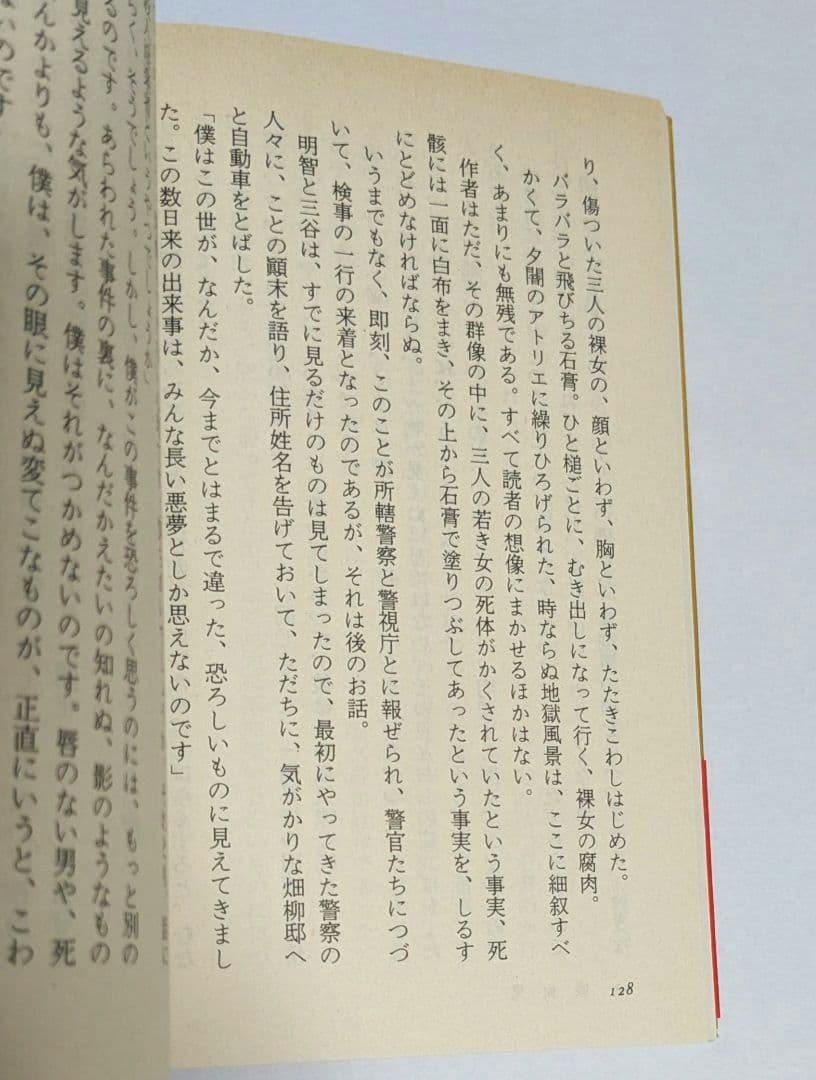 り、傷ついた三人の裸女の、顔といわず、胸といわず、たたきこわしはじめた。
バラバラと飛びちる石膏。ひと槌ごとに、むき出しになって行く、裸女の腐肉。
かくて、夕闇のアトリエに繰りひろげられた、時ならぬ地獄風景は、ここに細叙すべ
く、あまりにも無残である。すべて読者の想像にまかせるほかはない。
作者はただ、その群像の中に、三人の若き女の死体がかくされていたという事実、死
骸には一面に白布をまき、その上から石膏で塗りつぶしてあったという事実を、しるす
にとどめなければならぬ。
いうまでもなく、即刻、このことが所轄警察と警視庁とに報ぜられ、警官たちにつづ
いて、検事の一行の来着となったのであるが、それは後のお話。
明智と三谷は、すでに見るだけのものは見てしまったので、最初にやってきた警察の
人々に、ことの顚末を語り、住所姓名を告げておいて、ただちに、気がかりな畑柳邸へ
と自動車をとばした。
「僕はこの世が、なんだか、今までとはまるで違った、恐ろしいものに見えてきまし
た。この数日来の出来事は、みんな長い悪夢としか思えないのです」
128
らく、そうでしょう。しかし、僕がこの事件を恐ろしく思うのには、もっと別の
るのです。あらわれた事件の裏に、なんだかえたいの知れぬ、影のようなもの
見えるような気がします。僕はそれがつかめないのです。唇のない男や、死
んかよりも、僕は、その眼に見えぬ変てこなものが、正直にいうと、こわ
ないのです